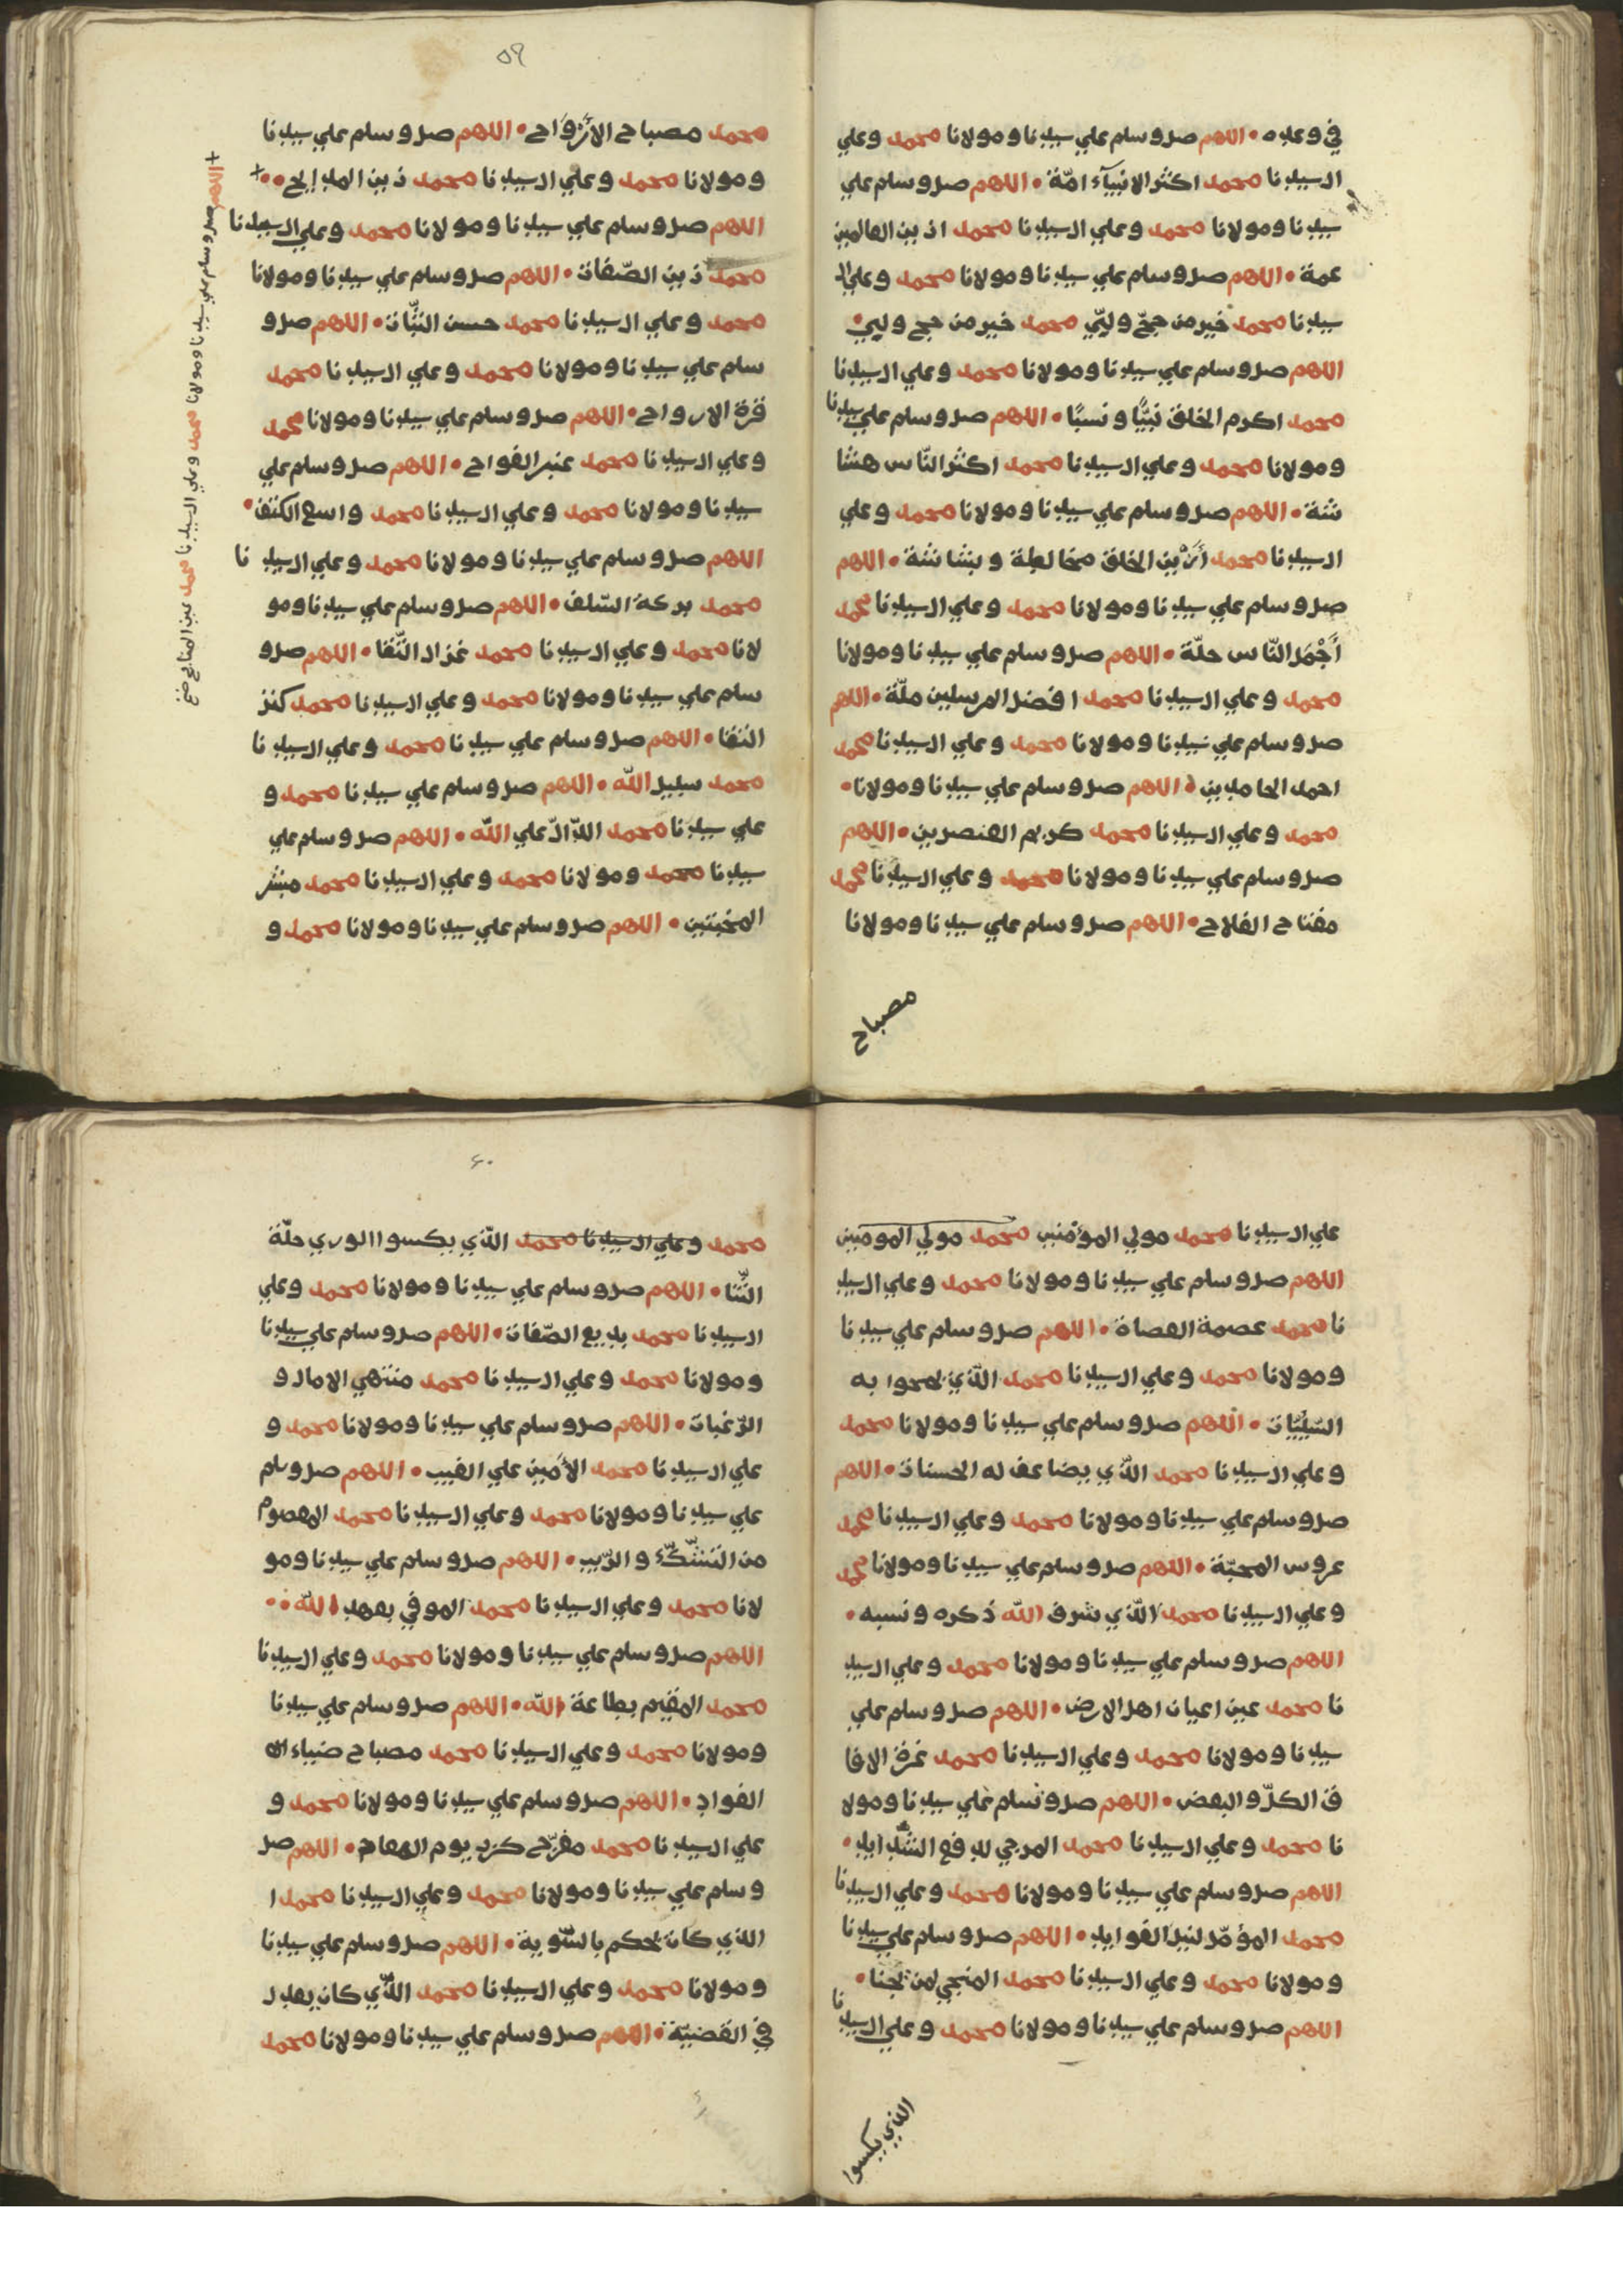 في وعده • اللهم صل وسلم علي سيدنا ومولانا محمد وعلي
ال سيدنا محمد اكثر الانبيآء امّة • اللهم صل وسلم علي
سيدنا ومولانا محمد وعلي ال سيدنا محمد ازين العالمين
عمة • اللهم صل وسلم علي سيدنا ومولانا محمد وعلي ال
سيدنا محمد خير من حجّ ولبّي محمد خير من حج ولبي •
اللهم صل وسلم علي سيدنا ومولانا محمد وعلي ال سيدنا
محمد اكرم الخلق نبيًّا ونسبًا • اللهم صل وسلم علي سيدنا
ومولانا محمد وعلي ال سيدنا محمد اكثر النّاس هشا
شة • اللهم صل وسلم علي سيدنا ومولانا محمد وعلي
ال سيدنا محمد أزين الخلق مخالطة وبشاشة • اللهم
صل وسلم علي سيدنا ومولانا محمد وعلي ال سيدنا محمد
أجمل النّاس حلّة • اللهم صل وسلم علي سيدنا ومولانا
محمد وعلي ال سيدنا محمد افضل المرسلين ملّة • اللهم
صل وسلم علي سيدنا ومولانا محمد وعلي ال سيدنا محمد
احمد الحامدين • اللهم صل وسلم علي سيدنا ومولانا •
محمد وعلي ال سيدنا محمد كريم العنصرين • اللهم
صل وسلم علي سيدنا ومولانا محمد وعلي ال سيدنا محمد
مفتاح الفلاح • اللهم صل وسلم علي سيدنا ومولانا
مصباح
٥٩
محمد مصباح الأرواح • اللهم صل وسلم علي سيدنا
ومولانا محمد وعلي ال سيدنا محمد زين المدايح • •
اللهم صل وسلم علي سيدنا ومولانا محمد وعلي ال سيدنا
محمد زين الصّفات • اللهم صل وسلم علي سيدنا ومولانا
محمد وعلي ال سيدنا محمد حسن النيّات • اللهم صل و
سلم علي سيدنا ومولانا محمد وعلي ال سيدنا محمد
قرة الارواح • اللهم صل وسلم علي سيدنا ومولانا محمد
وعلي ال سيدنا محمد عنبر الفواح • اللهم صل وسلم علي
سيدنا ومولانا محمد وعلي ال سيدنا محمد واسع الكنف •
اللهم صل وسلم علي سيدنا ومولانا محمد وعلي ال سيد نا
محمد بركة السّلف • اللهم صل وسلم علي سيدنا ومو
لانا محمد وعلي ال سيدنا محمد غزال النّقا • اللهم صل و
سلم علي سيدنا ومولانا محمد وعلي ال سيدنا محمد كنز
التقا • اللهم صل وسلم علي سيدنا محمد وعلي ال سيدنا
محمد سبيل اللّه • اللهم صل وسلم علي سيدنا محمد و
علي سيدنا محمد الدّالّ علي اللّه • اللهم صل وسلم علي
سيدنا محمد ومولانا محمد وعلي ال سيدنا محمد مبشر
المخبتين • اللهم صل وسلم علي سيدنا ومولانا محمد و
اللهم صل وسلم علي سيدنا ومولانا محمد وعلي ال سيدنا محمد
علي ال سيدنا محمد مولي المؤمنين محمد مولي المومنين
اللهم صل وسلم علي سيدنا ومولانا محمد وعلي ال سيد
نا محمد عصمة العصاة • اللهم صل وسلم علي سيدنا
ومولانا محمد وعلي ال سيدنا محمد الذي تمحوا به
السّيّيات • اللهم صل وسلم علي سيدنا ومولانا محمد
وعلي ال سيدنا محمد الذي يضاعف له الحسنات • اللهم
صل وسلم علي سيدنا ومولانا محمد وعلي ال سيدنا محمد
عروس المحبّة • اللهم صل وسلم علي سيدنا ومولانا محمد
وعلي ال سيدنا محمد الذي شرف اللّه ذكره ونسبه •
اللهم صل وسلم علي سيدنا ومولانا محمد وعلي ال سيد
نا محمد عين اعيان اهل الارض • اللهم صل وسلم علي
سيدنا ومولانا محمد وعلي ال سيدنا محمد غرة الافا
ق الكلّ والبعض • اللهم صل وسلم علي سيدنا ومولا
نا محمد وعلي ال سيدنا محمد المرجي لدفع الشدايد •
اللهم صل وسلم علي سيدنا ومولانا محمد وعلي ال سيدنا
محمد المؤمّل لنيل الفوايد • اللهم صل وسلم علي سيدنا
ومولانا محمد وعلي ال سيدنا محمد المنجي لمن نجنا •
اللهم صل وسلم علي سيدنا ومولانا محمد وعلي ال سيدنا
الذي يكسوا
٦٠
محمد وعلي ال سيدنا محمد الذي يكسوا الوري حلّة
الثّنا • اللهم صل وسلم علي سيدنا ومولانا محمد وعلي
ال سيدنا محمد بديع الصّفات • اللهم صل وسلم علي سيدنا
ومولانا محمد وعلي ال سيدنا محمد منتهي الامال و
الرّغبات • اللهم صل وسلم علي سيدنا ومولانا محمد و
علي ال سيدنا محمد الأمين علي الغيب • اللهم صل وسلم
علي سيدنا ومولانا محمد وعلي ال سيدنا محمد المعصوم
من الشّكّ والرّيب • اللهم صل وسلم علي سيدنا ومو
لانا محمد وعلي ال سيدنا محمد الموفي بعهد اللّه • •
اللهم صل وسلم علي سيدنا ومولانا محمد وعلي ال سيدنا
محمد المقيم بطاعة اللّه • اللهم صل وسلم علي سيدنا
ومولانا محمد وعلي ال سيدنا محمد مصباح ضياء
الفواد • اللهم صل وسلم علي سيدنا ومولانا محمد و
علي ال سيدنا محمد مفرّج كرب يوم المعاد • اللهم صل
وسلم علي سيدنا ومولانا محمد وعلي ال سيدنا محمد ا
الذي كان يحكم بالسّوية • اللهم صل وسلم علي سيدنا
ومولانا محمد وعلي ال سيدنا محمد الذي كان يعدل
في القضيّة • اللهم صل وسلم علي سيدنا ومولانا محمد